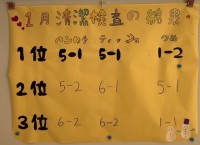 1月清潔検査の結果
ハンカチ ティッシュ つめ
1位 5-1 5-1 1-2
2位 5-2 6-1 5-1
3位 6-2 6-2 1-1